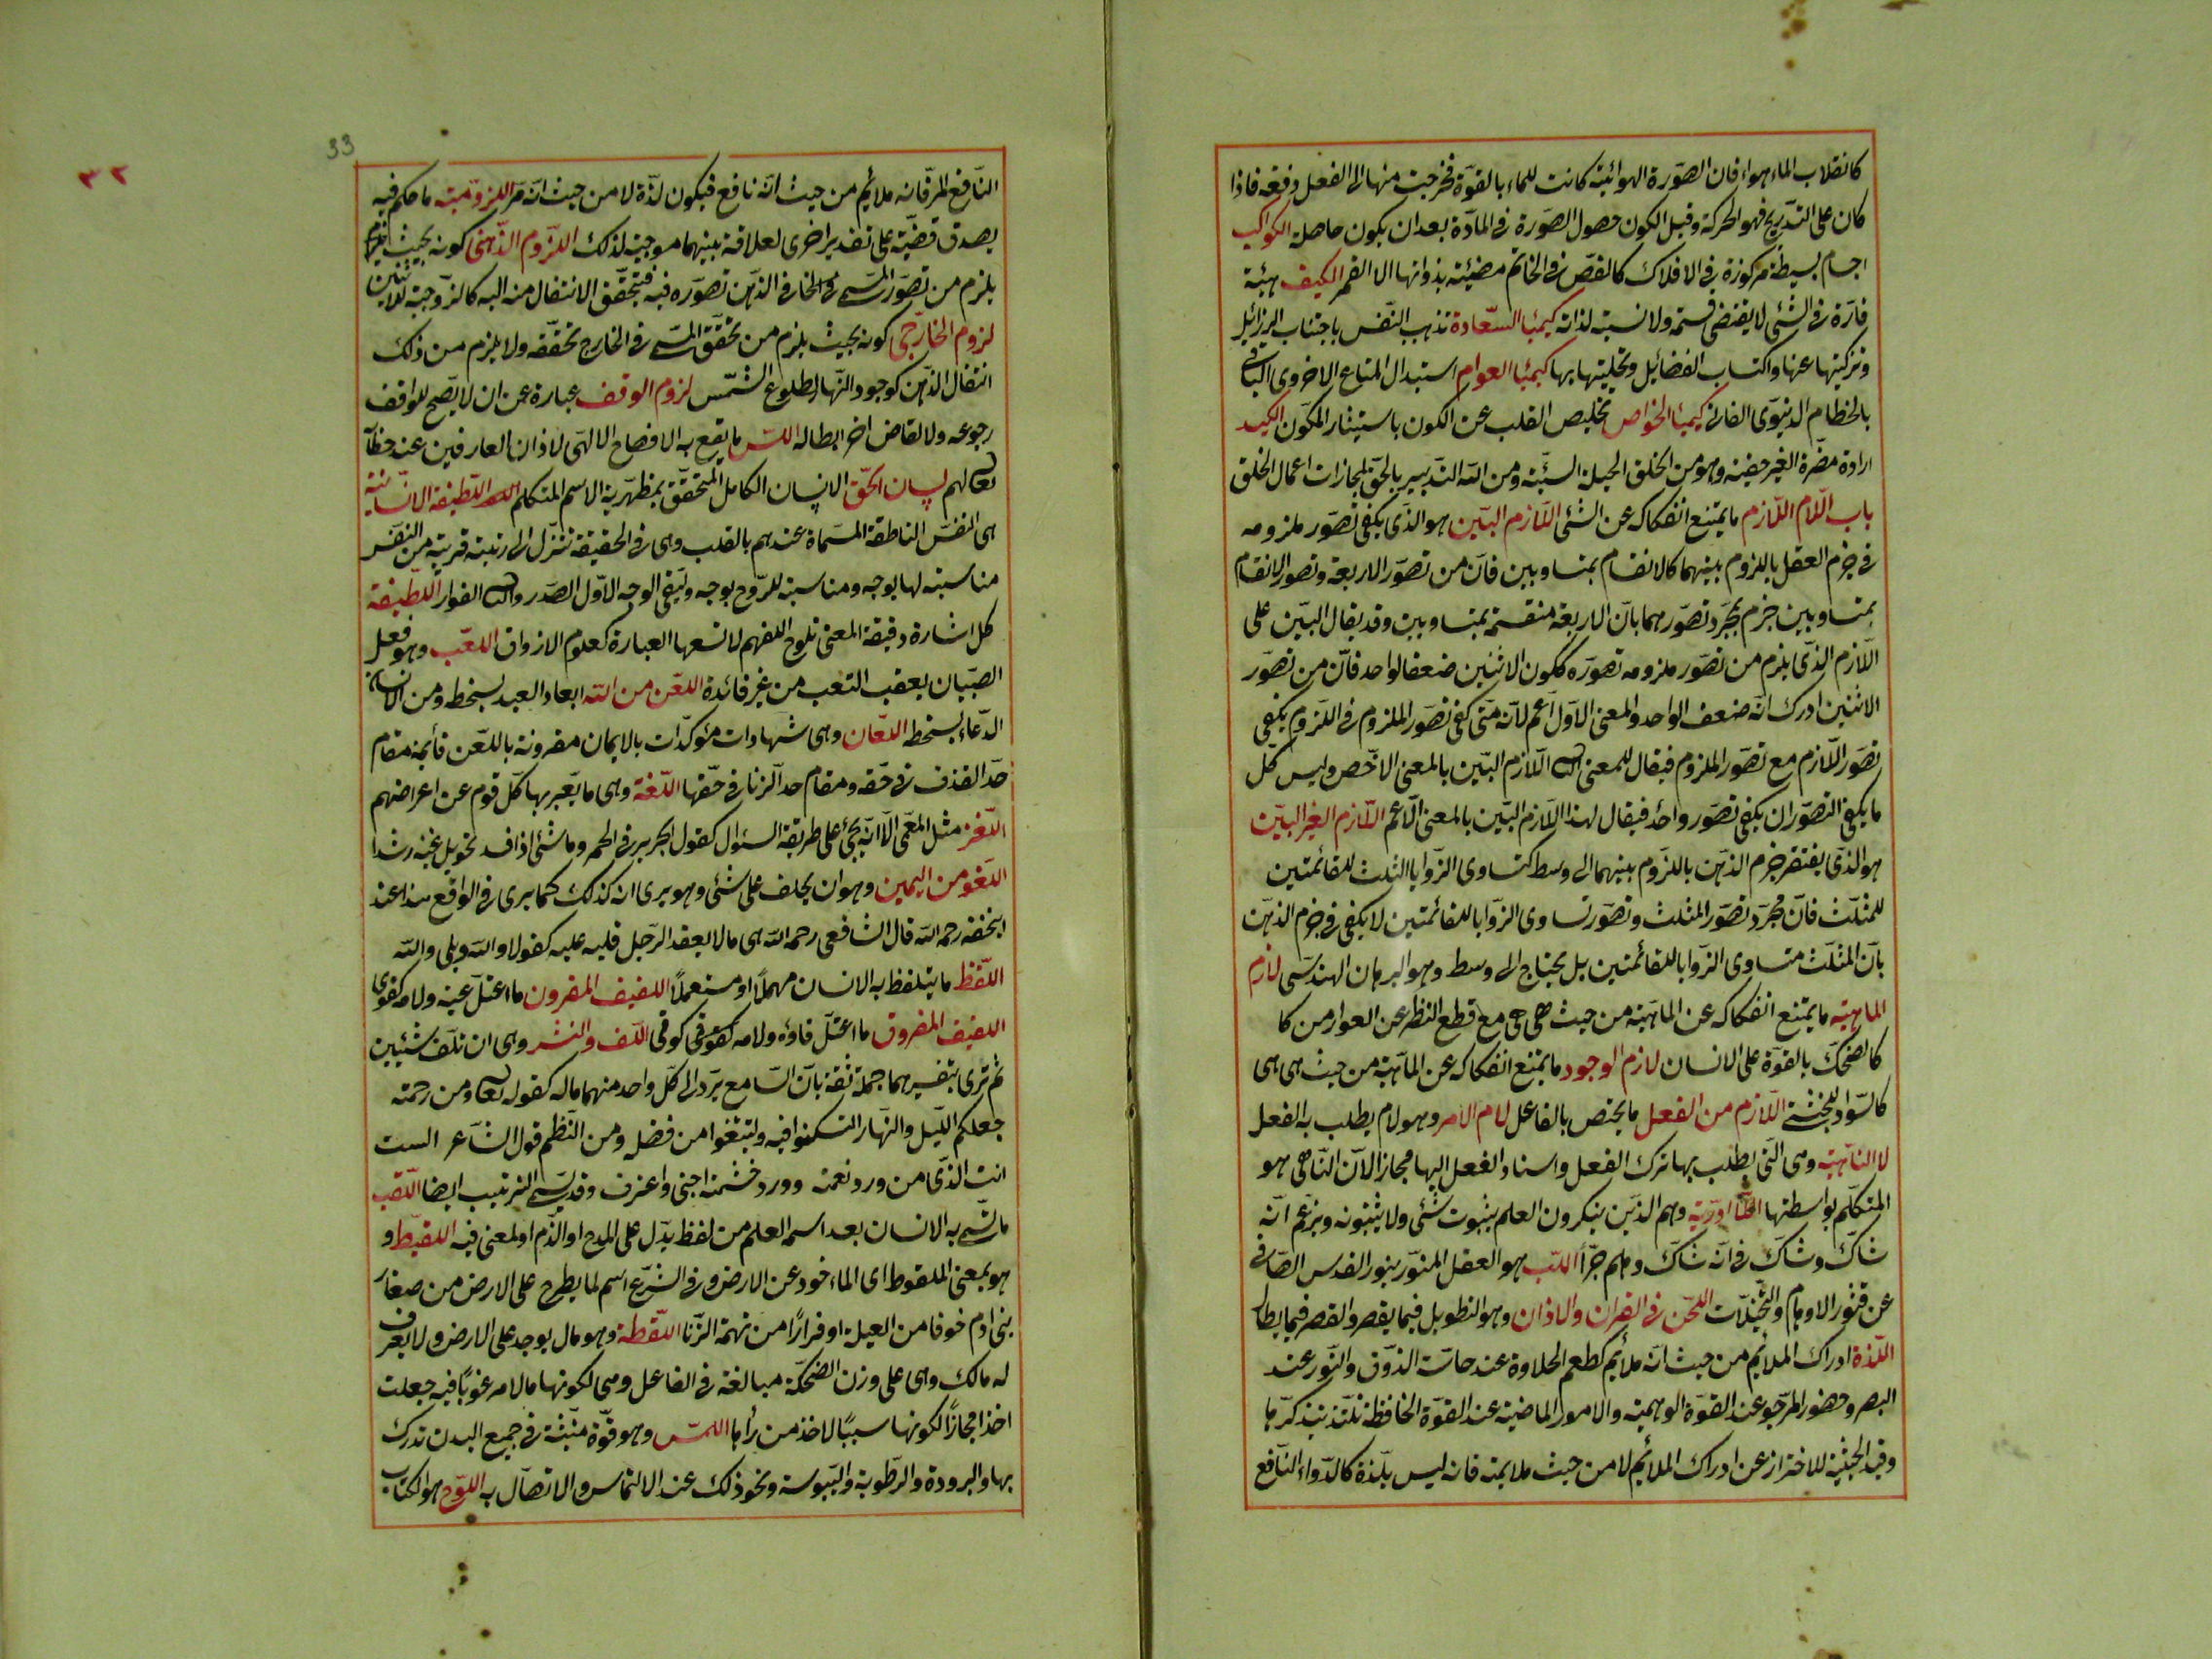 كانقلاب الماء هواء فان الصورة الهوائية كانت للماء بالقوة فخرجت منها الى الفعل دفعة فاذا
كان على التدريج فهو الحركة وقيل الكون حصول الصورة فى المادة بعد ان يكون حاصلة الكواكب
اجسام بسيطة مركوزة فى الافلاك كالفص فى الخاتم مضيئة بذواتها الا القمر الكيف هيئة
قارة فى الشئ لا يقتضى قسمة ولا نسبة لذاته كيمياء السعادة تهذيب النفس باجتناب الرزائل
وتزكيتها عنها واكتساب الفضائل وتحليتها بها كيمياء العوام استبدال المتاع الاخروى الباقى
بالحطام الدنيوى الفانى كيمياء الخواص تخليص القلب عن الكون باستيثار المكون الكيد
ارادة مضرة الغير خفية وهو من الخلق الحيلة السيئة ومن الله التدبير بالحق لمجازات اعمال الخلق
باب اللام اللازم ما يمتنع انفكاكه عن الشئ اللازم البين هو الذى يكفى تصور ملزومه
فى جزم العقل باللزوم بينهما كالانقسام بمتساويين فان من تصور الاربعة وتصور الانقسام
بمتساويين جزم بمجرد تصورهما بان الاربعة منقسمة بمتساويين وقد يقال البين على
اللازم الذى يلزم من تصور ملزومه تصوره ككون الاثنين ضعفا لواحد فان من تصور
الاثنين ادرك انه ضعف الواحد والمعنى الاول اعم لانه متى كفى تصور الملزوم فى اللزوم يكفى
تصور اللازم مع تصور الملزوم فيقال للمعنى الثانى اللازم البين بالمعنى الاخص وليس كل
ما يكفى التصوران يكفى تصور واحد فيقال لهذا اللازم البين بالمعنى الاعم اللازم الغير البين
هو الذى يفتقر جزم الذهن باللزوم بينهما الى وسط كتساوى الزوايا الثلث للقائمتين
للمثلث فان مجرد تصور المثلث وتصور تساوى الزوايا للقائمتين لا يكفى فى جزم الذهن
بان المثلث متساوى الزوايا للقائمتين بل يحتاج الى وسط وهو البرهان الهندسى لازم
الماهية ما يمتنع انفكاكه عن الماهية من حيث هى هى مع قطع النظر عن العوارض كا
كالضحك بالقوة على الانسان لازم الوجود ما يمتنع انفكاكه عن الماهية من حيث هى هى
كالسواد للحبشى اللازم من الفعل ما يختص بالفاعل لام الامر وهو لام يطلب به الفعل
لا الناهية وهى التى يطلب بها ترك الفعل واسناد الفعل اليها مجازا لان الناهى هو
المتكلم بواسطتها اللاادرية وهم الذين ينكرون العلم بثبوت شئ ولا ثبوته ويزعم انه
شاك وشاك فى انه شاك وهلم جرا اللب هو العقل المنور بنور القدس الصافى
عن قشور الاوهام والتخيلات اللحن فى القران والاذان وهو التطويل فيما يقصر والقصر فيما يطال
اللذة ادراك الملايم من حيث انه ملائم كطعم الحلاوة عند حاسة الذوق والنور عند
البصر وحضور المرجو عند القوة الوهمية والامور الماضية عند القوة الحافظة تلتذ بتذكرها
وقيد الحيثية للاحتراز عن ادراك الملائم لا من حيث ملايمته فانه ليس بلذة كالدواء النافع
33
٣٢
النافع المر فانه ملائم من حيث انه نافع فيكون لذة لا من حيث انه مر اللزومية ما حكم فيه
بصدق قضية على تقدير اخرى لعلاقة بينهما موجبة لذلك اللزوم الذهنى كونه بحيث
يلزم من تصور المسمى فى الخارفى الذهن تصوره فيه فيتحقق الانتقال منه اليه كالزوجية للاثنين
لزوم الخارجى كونه بحيث يلزم من تحقق المسمى فى الخارج تحققه ولا يلزم من ذلك
انتقال الذهن كوجود النهار لطلوع الشمس لزوم الوقف عبارة عن ان لا يصح للواقف
رجوعه ولا لقاض اخر ابطاله اللسن ما يقع به الافصاح الالهى لاذان العارفين عند خطابه
تعالى لهم لسان الحق الانسان الكامل المتحقق بمظهرية الاسم المتكلم اللطيفة الانسانية
هى النفس الناطقة المسماة عندهم بالقلب وهى فى الحقيقة تنزل الى رتبة قريبة من النفس
مناسبة لها بوجه ومناسبة للروح بوجه ويسمى الوجه الاول الصدر والثانى الفواد اللطيفة
كل اشارة دقيقة المعنى تلوح للفهم لا تسعها العبارة كعلوم الازواق اللعب وهو فعل
الصبيان يعقب التعب من غير فائدة اللعن من الله ابعاد العبد بسخطه ومن الانسان
الدعاء بسخطه اللعان وهى شهادات مؤكدات بالايمان مقرونة باللعن قائمة مقام
حد القذف فى حقه ومقام حد الزنا فى حقها اللغة وهى ما يعبر بها كل قوم عن اغراضهم
اللغز مثل المعمى الا انه يجئ على طريقة السئوال كقول الحريرى فى الخمر وما شئ اذا فسد تحويل غيه رشدا
اللغو من اليمين وهو ان يحلف على شئ وهو يرى انه كذلك كما يرى فى الواقع هذا عند
ابيحنفه رحمه الله قال الشافعى رحمه الله هى ما لا يعقد الرجل قلبه عليه كقول لا والله وبلى والله
اللفظ ما يتلفظ به الانسان مهملا او مستعملا اللفيف المقرون ما اعتل عينه ولامه كقوى
اللفيف المفروق ما اعتل فاؤه ولامه كوقى اللف والنشر وهى ان تلف شيئين
ثم ترى بتفسيرهما جملة ثقة بان السامع يرد الى كل واحد منهما ماله كقوله تعالى ومن رحمته
جعلكم الليل والنهار لتسكنوا فيه ولتبتغوا من فضله ومن النظم قول الشاعر الست
انت الذى من ورد نعمته وورد خشمته اجنى واغترف وقد يسمى الترتيب ايضا اللقب
ما يسمى به الانسان بعد اسمه العلم من لفظ يدل على المدح او الذم او لمعنى فيه اللقيط و
هو بمعنى الملقوط اى الماءخود عن الارض وفى الشرع اسم لما يطرح على الارض من صغار
بنى ادم خوفا من العيلة او فرارا من تهمة الزنا اللقطة وهو مال يوجد على الارض ولا يعرف
له مالك وهى على وزن الضحكة مبالغة فى الفاعل وهى لكونها مالا مرغوبا فيه جعلت
اخذا مجازا لكونها سببا لاخذ من رأها اللمس وهو قوة منبثة فى جميع البدن تدرك
بها والبرودة والرطوبة واليبوسة ونحو ذلك عند الالتماس والاتصال به اللوح هو الكتاب